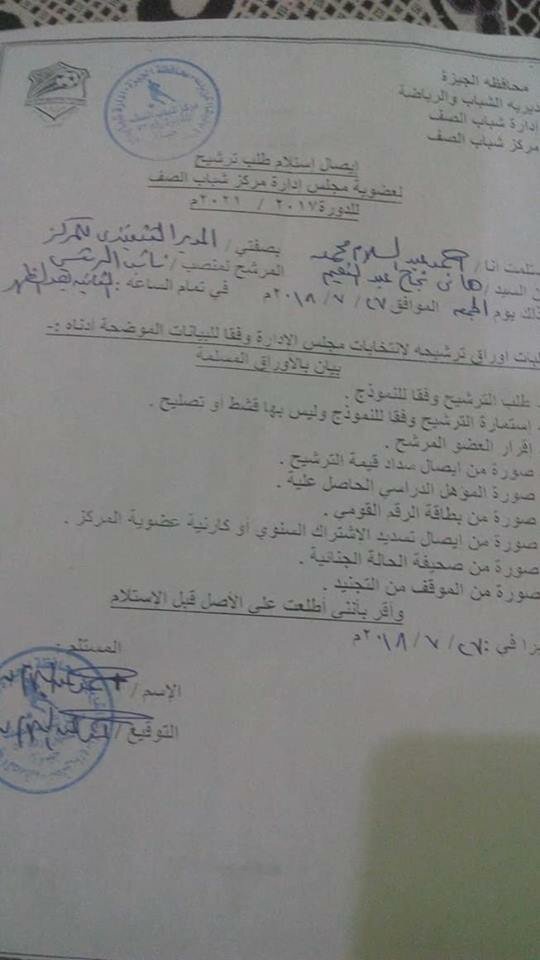 محافظه الجيزة
ديريه الشباب والرياضة
ادارة شباب الصف
مركز شباب الصف
إيصال استلام طلب ترشيح
لعضوية مجلس ادارة مركز شباب الصف
للدورة ٢٠١٧ / ٢٠٢١م
ستلمت انا / احمد عبد السلام محمد بصفتي / المدير التنفيذى للمركز
ن السيد / هانى نجاح عبد النعيم المرشح لمنصب / نائب الرئيس
ذلك يوم الجمعه الموافق ٢٧ / ٧ / ٢٠١٨م في تمام الساعه : الثانيه بعد الظهر
لبات اوراق ترشيحه لانتخابات مجلس الادارة وفقا للبيانات الموضحة ادناه :-
بيان بالاوراق المسلمة
. طلب الترشيح وفقا للنموذج .
. استمارة الترشيح وفقا للنموذج وليس بها قشط أو تصليح .
اقرار العضو المرشح .
صورة من ايصال سداد قيمة الترشيح .
صورة المؤهل الدراسي الحاصل علية .
صورة من بطاقة الرقم القومي .
صورة من إيصال تسديد الاشتراك السنوي أو كارنية عضوية المركز .
صورة من صحيفة الحالة الجنائية .
صورة من الموقف من التجنيد .
وأقر بأنني أطلعت علي الأصل قبل الاستلام
يرا في : ٢٧ / ٧ / ٢٠١٨م
المستلم :
الإسم /
التوقيع /